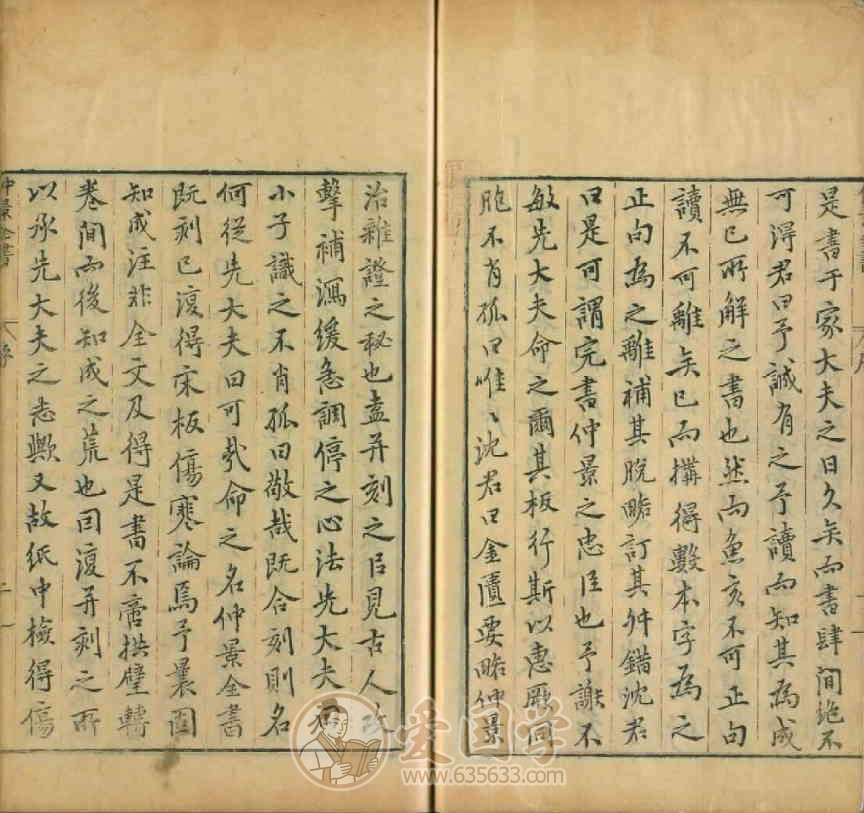 是書于家大夫之日久矣而書肆間絶不
可得君曰予誠有之予讀而知其為成
無已所解之書也然而魚亥不可正句
讀不可離矣已而搆得數本字為之
正句為之離補其脫畧訂其舛錯沈君
曰是可謂完書仲景之忠臣也予謝不
敏先大夫命之爾其板行斯以惠厥同
胞不肖孤曰唯〻沈君曰金匱要畧仲景
治雜證之秘也盍并刻之以見古人攻
擊補瀉緩急調停之心法先大夫曰
小子識之不肖孤曰敬哉既合刻則名
何從先大夫曰可哉命之名仲景全書
既刻已復得宋板傷寒論焉予曩固
知成注非全文及得是書不啻拱璧轉
卷間而後知成之荒也因復并刻之所
以承先大夫之志歟又故紙中檢得傷
仲景全書
序
二
爱国学
www.635633.com